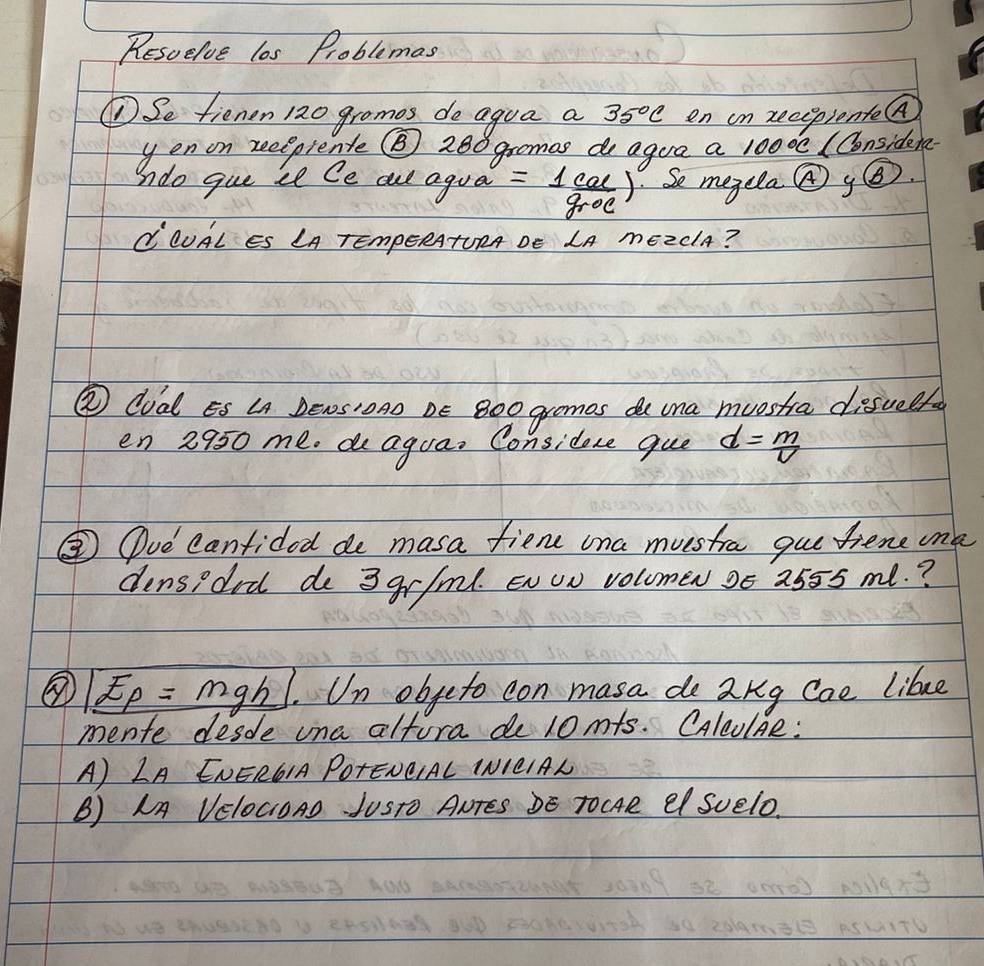 Resuelve los Problemas
① Se tienen 120 gramos de agua a 35°C en un recipiente Ⓐ
y en un recipiente Ⓑ 280 gramos de agua a 100°C (Considera-
ndo que el Ce del agua = 1 cal/gr°C). Se mezcla Ⓐ y Ⓑ.
¿CUÁL ES LA TEMPERATURA DE LA MEZCLA?
② Cuál ES LA DENSIDAD DE 800 gramos de una muestra disuelta
en 2950 ml. de agua. Considere que d = m/v
③ Qué cantidad de masa tiene una muestra que tiene una
densidad de 3 gr/ml. EN UN VOLUMEN DE 2555 ml.?
④ Ep = mgh. Un objeto con masa de 2Kg Cae libre
mente desde una altura de 10 mts. CALCULAR:
A) LA ENERGIA POTENCIAL INICIAL
B) LA VELOCIDAD JUSTO ANTES DE TOCAR el Suelo.